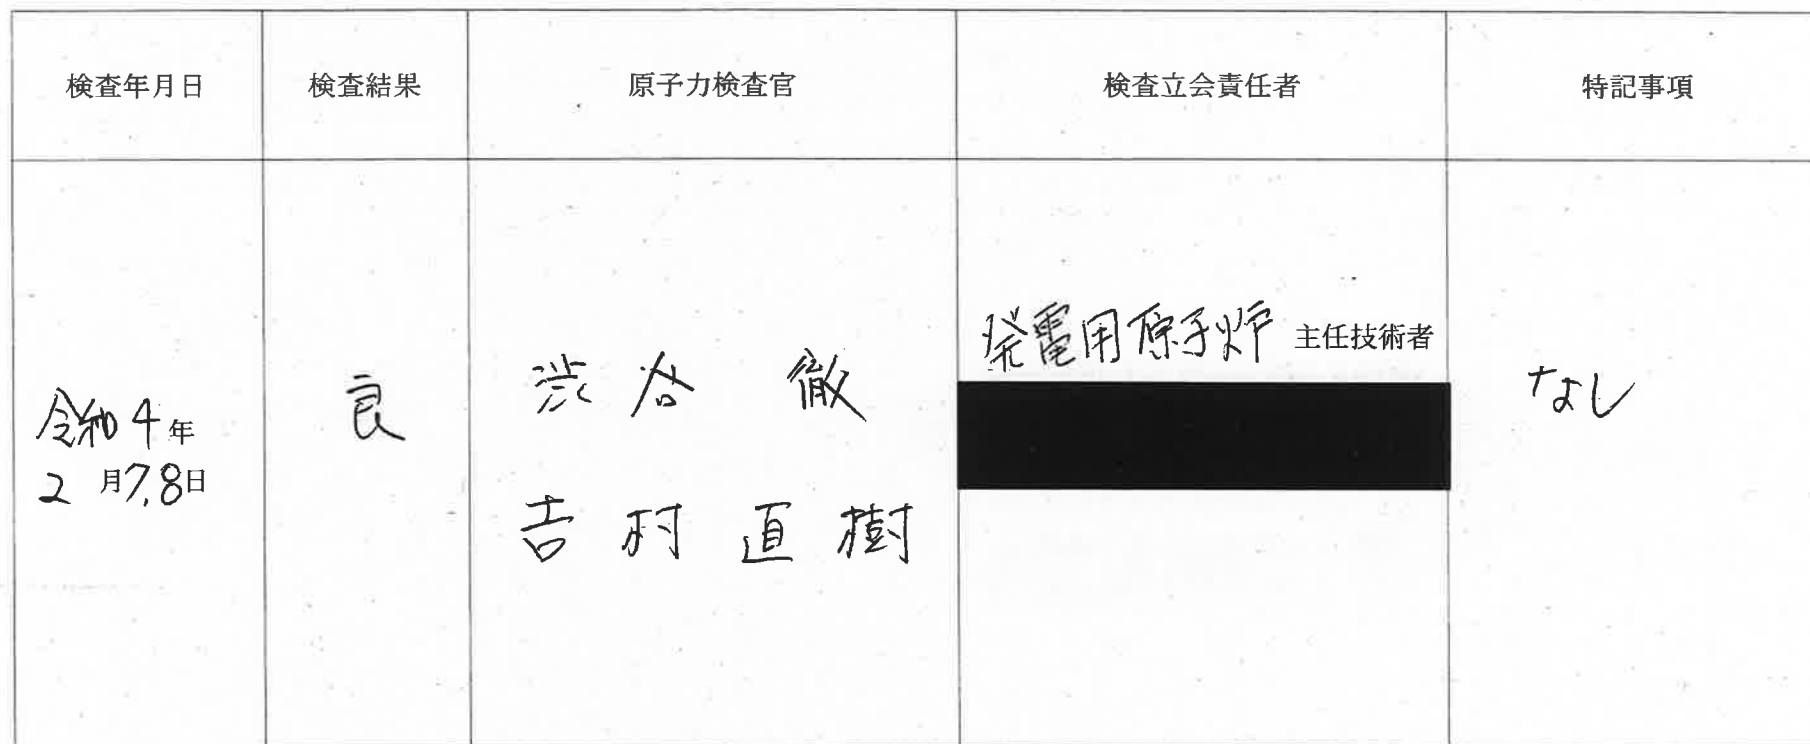 検査年月日
検査結果
原子力検査官
検査立会責任者
特記事項
令和4年
2月7,8日
良
渋谷 徹
吉村直樹
発電用原子炉 主任技術者
なし